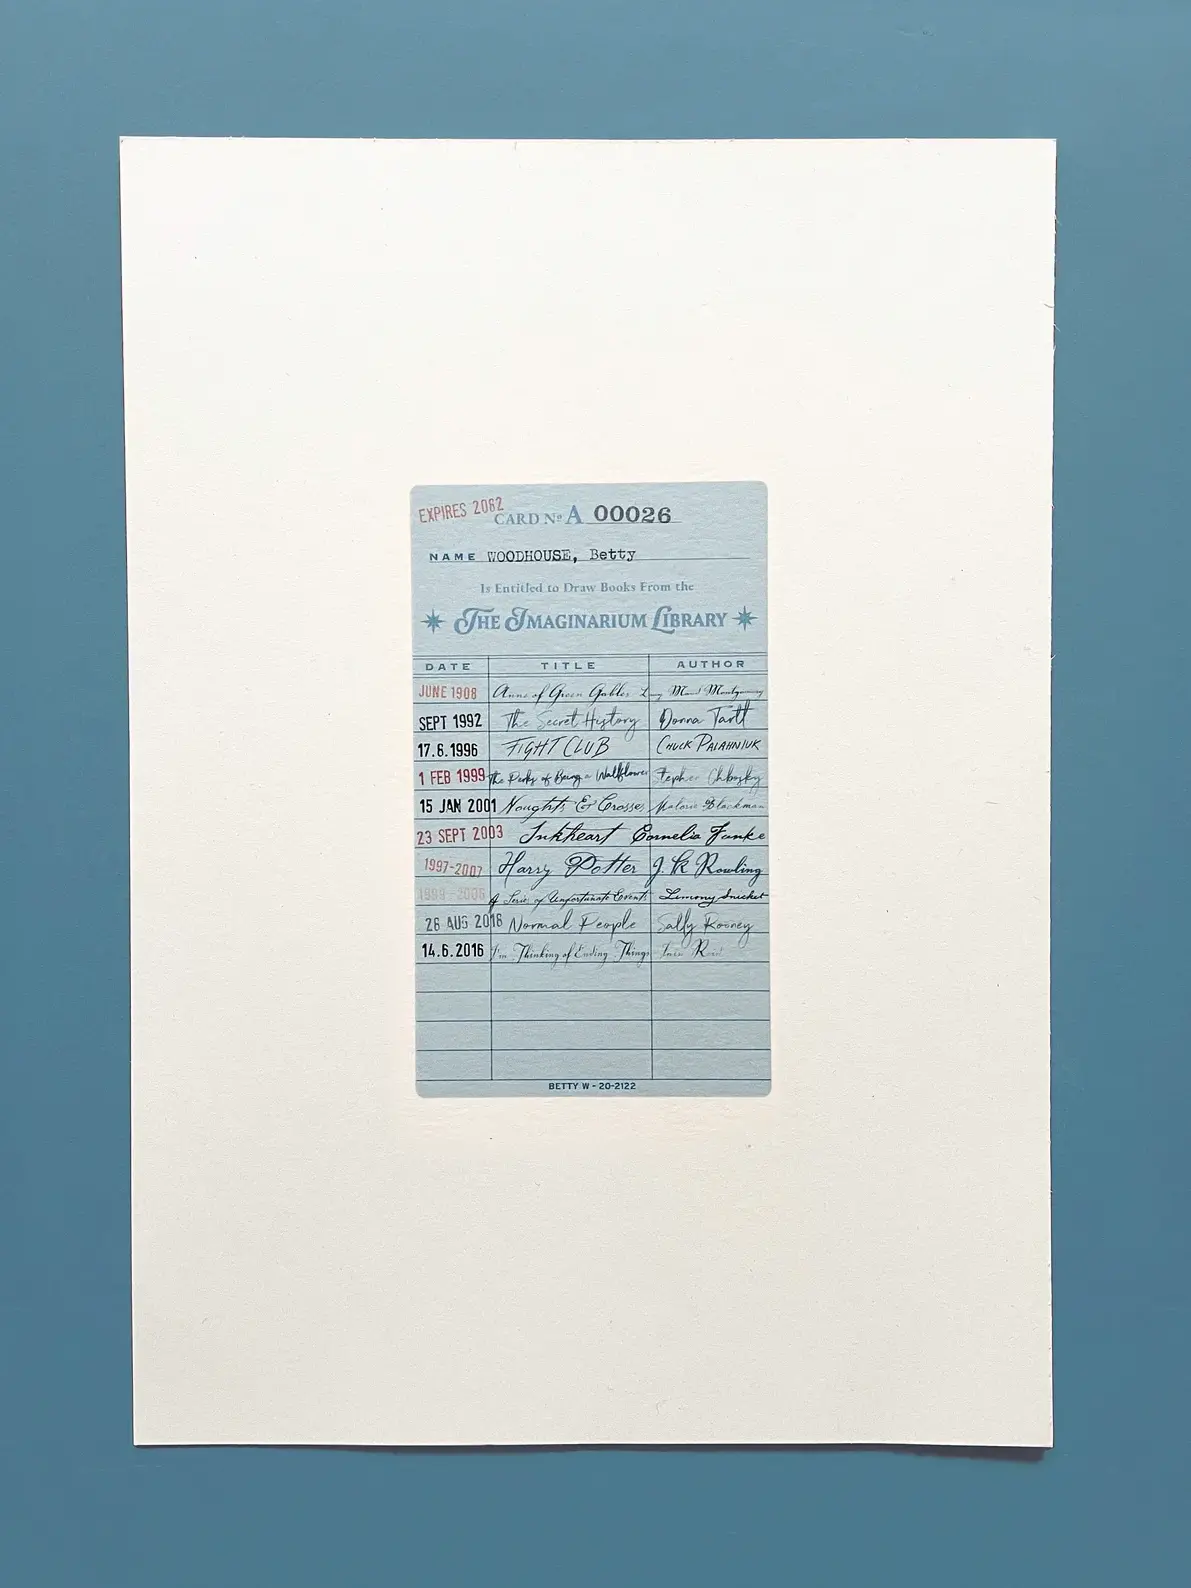 EXPIRES 2062
CARD Nº A 00026
NAME WOODHOUSE, Betty
Is Entitled to Draw Books From the
THE IMAGINARIUM LIBRARY
DATE TITLE AUTHOR
JUNE 1908 Anne of Green Gables Lucy Maud Montgomery
SEPT 1992 The Secret History Donna Tartt
17.6.1996 FIGHT CLUB CHUCK PALAHNIUK
1 FEB 1999 The Perks of Being a Wallflower Stephen Chbosky
15 JAN 2001 Noughts & Crosses Malorie Blackman
23 SEPT 2003 Inkheart Cornelia Funke
1997-2007 Harry Potter J. K Rowling
1999-2006 A Series of Unfortunate Events Lemony Snicket
28 AUG 2018 Normal People Sally Rooney
14.6.2016 I'm Thinking of Ending Things Iain Reid
BETTY W - 20-2122